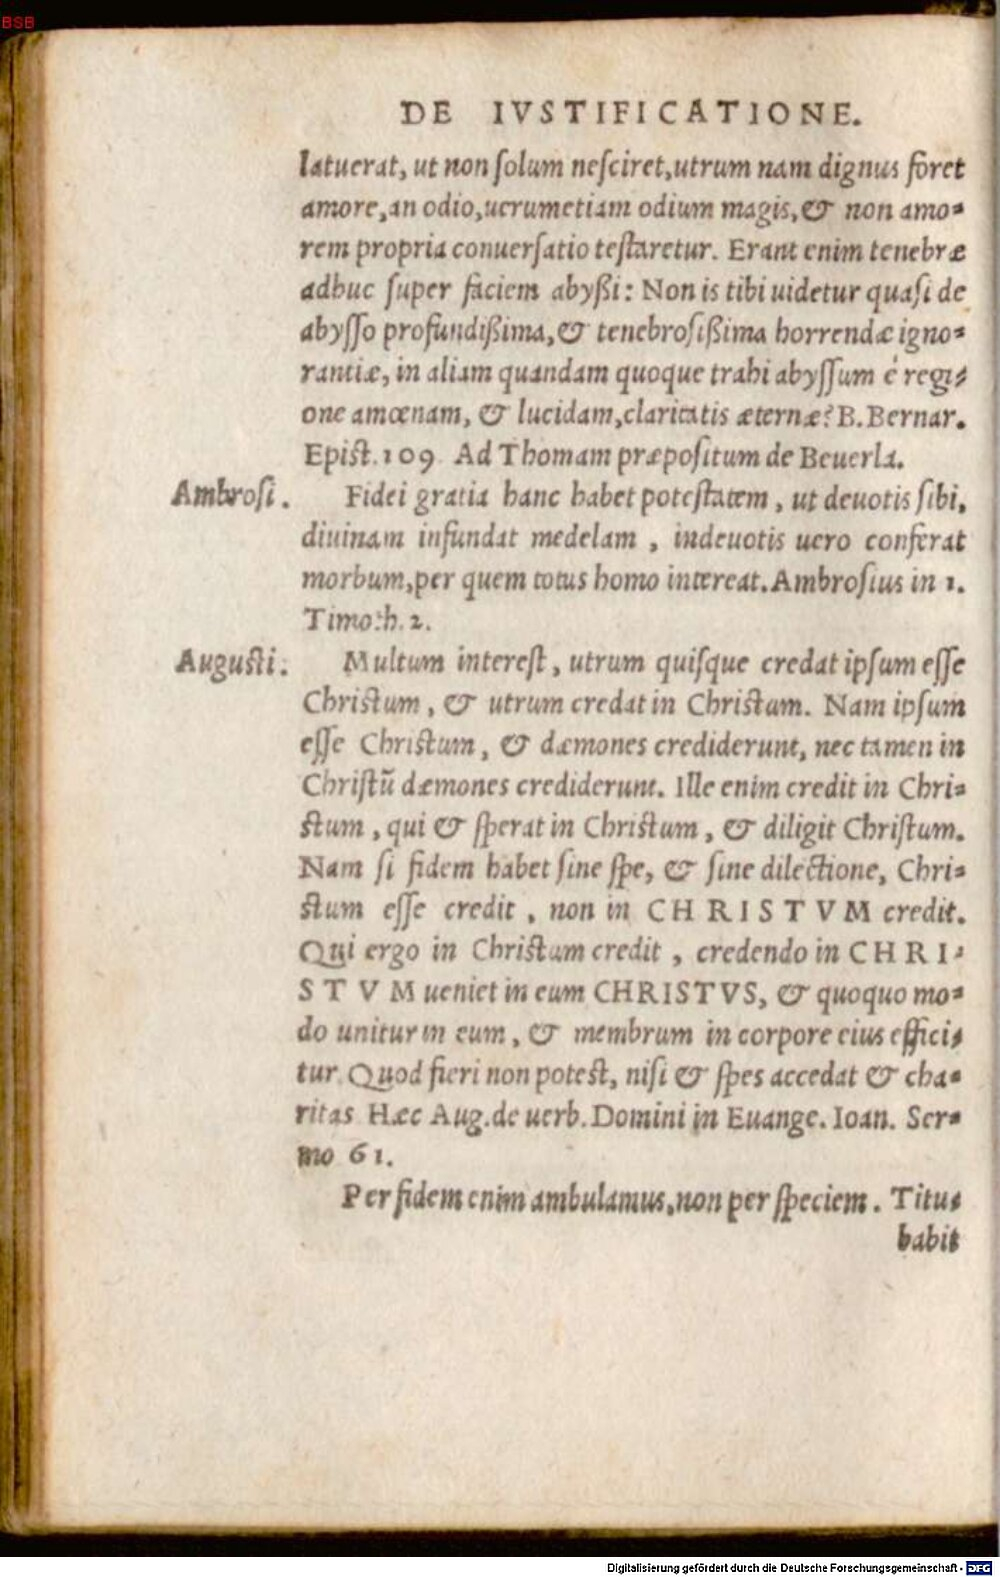 BSB
DE IVSTIFICATIONE.
latuerat, ut non solum nesciret, utrum nam dignus foret
amore, an odio, uerumetiam odium magis, & non amo-
rem propria conuersatio testaretur. Erant enim tenebræ
adhuc super faciem abyßi: Non is tibi uidetur quasi de
abysso profundißima, & tenebrosißima horrendæ igno-
rantiæ, in aliam quandam quoque trahi abyssum è regi-
one amœnam, & lucidam, claritatis æternæ? B. Bernar.
Epist. 109 Ad Thomam præpositum de Beuerla.
Ambrosi. Fidei gratia hanc habet potestatem, ut deuotis sibi,
diuinam infundat medelam, indeuotis uero conferat
morbum, per quem totus homo intereat. Ambrosius in 1.
Timoth. 2.
Augusti. Multum interest, utrum quisque credat ipsum esse
Christum, & utrum credat in Christum. Nam ipsum
esse Christum, & dæmones crediderunt, nec tamen in
Christũ dæmones crediderunt. Ille enim credit in Chri-
stum, qui & sperat in Christum, & diligit Christum.
Nam si fidem habet sine spe, & sine dilectione, Chri-
stum esse credit, non in CHRISTVM credit.
Qui ergo in Christum credit, credendo in CHRI-
STVM ueniet in eum CHRISTVS, & quoquo mo-
do unitur in eum, & membrum in corpore eius effici-
tur. Quod fieri non potest, nisi & spes accedat & cha-
ritas Hæc Aug. de uerb. Domini in Euange. Ioan. Ser-
mo 61.
Per fidem enim ambulamus, non per speciem. Titu-
habit
Digitalisierung gefördert durch die Deutsche Forschungsgemeinschaft - DFG